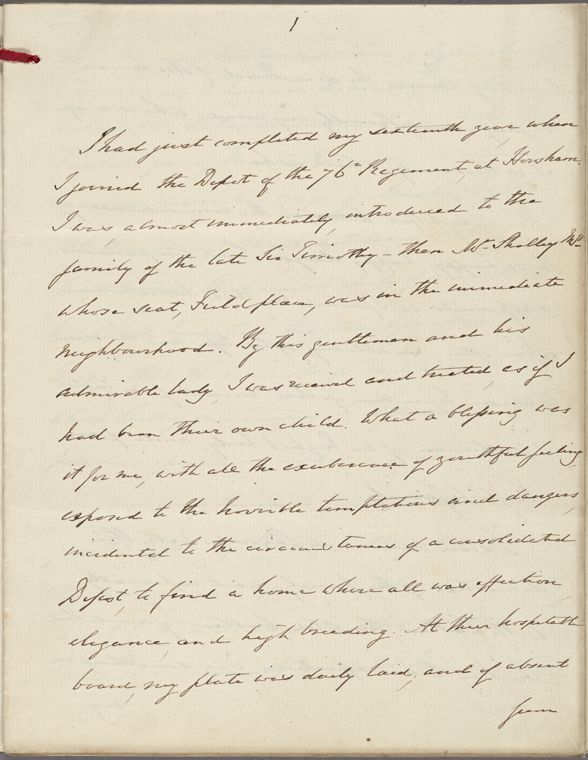 1
I had just completed my sixteenth year when
I joined the Depot of the 76th Regiment at Horsham.
I was, almost immediately, introduced to the
family of the late Sir Timothy - then Mr Shelley MP.
whose seat, Field place, was in the immediate
neighbourhood. By this gentleman and his
admirable lady, I was received and treated, as if I
had been their own child. What a blessing was
it for me, with all the exuberance of youthful feeling
exposed to the horrible temptations and dangers,
incidental to the circumstances of a consolidated
Depot, to find a home where all was affection,
elegance, and high breeding. At their hospitable
board, my plate was daily laid, and if absent
from